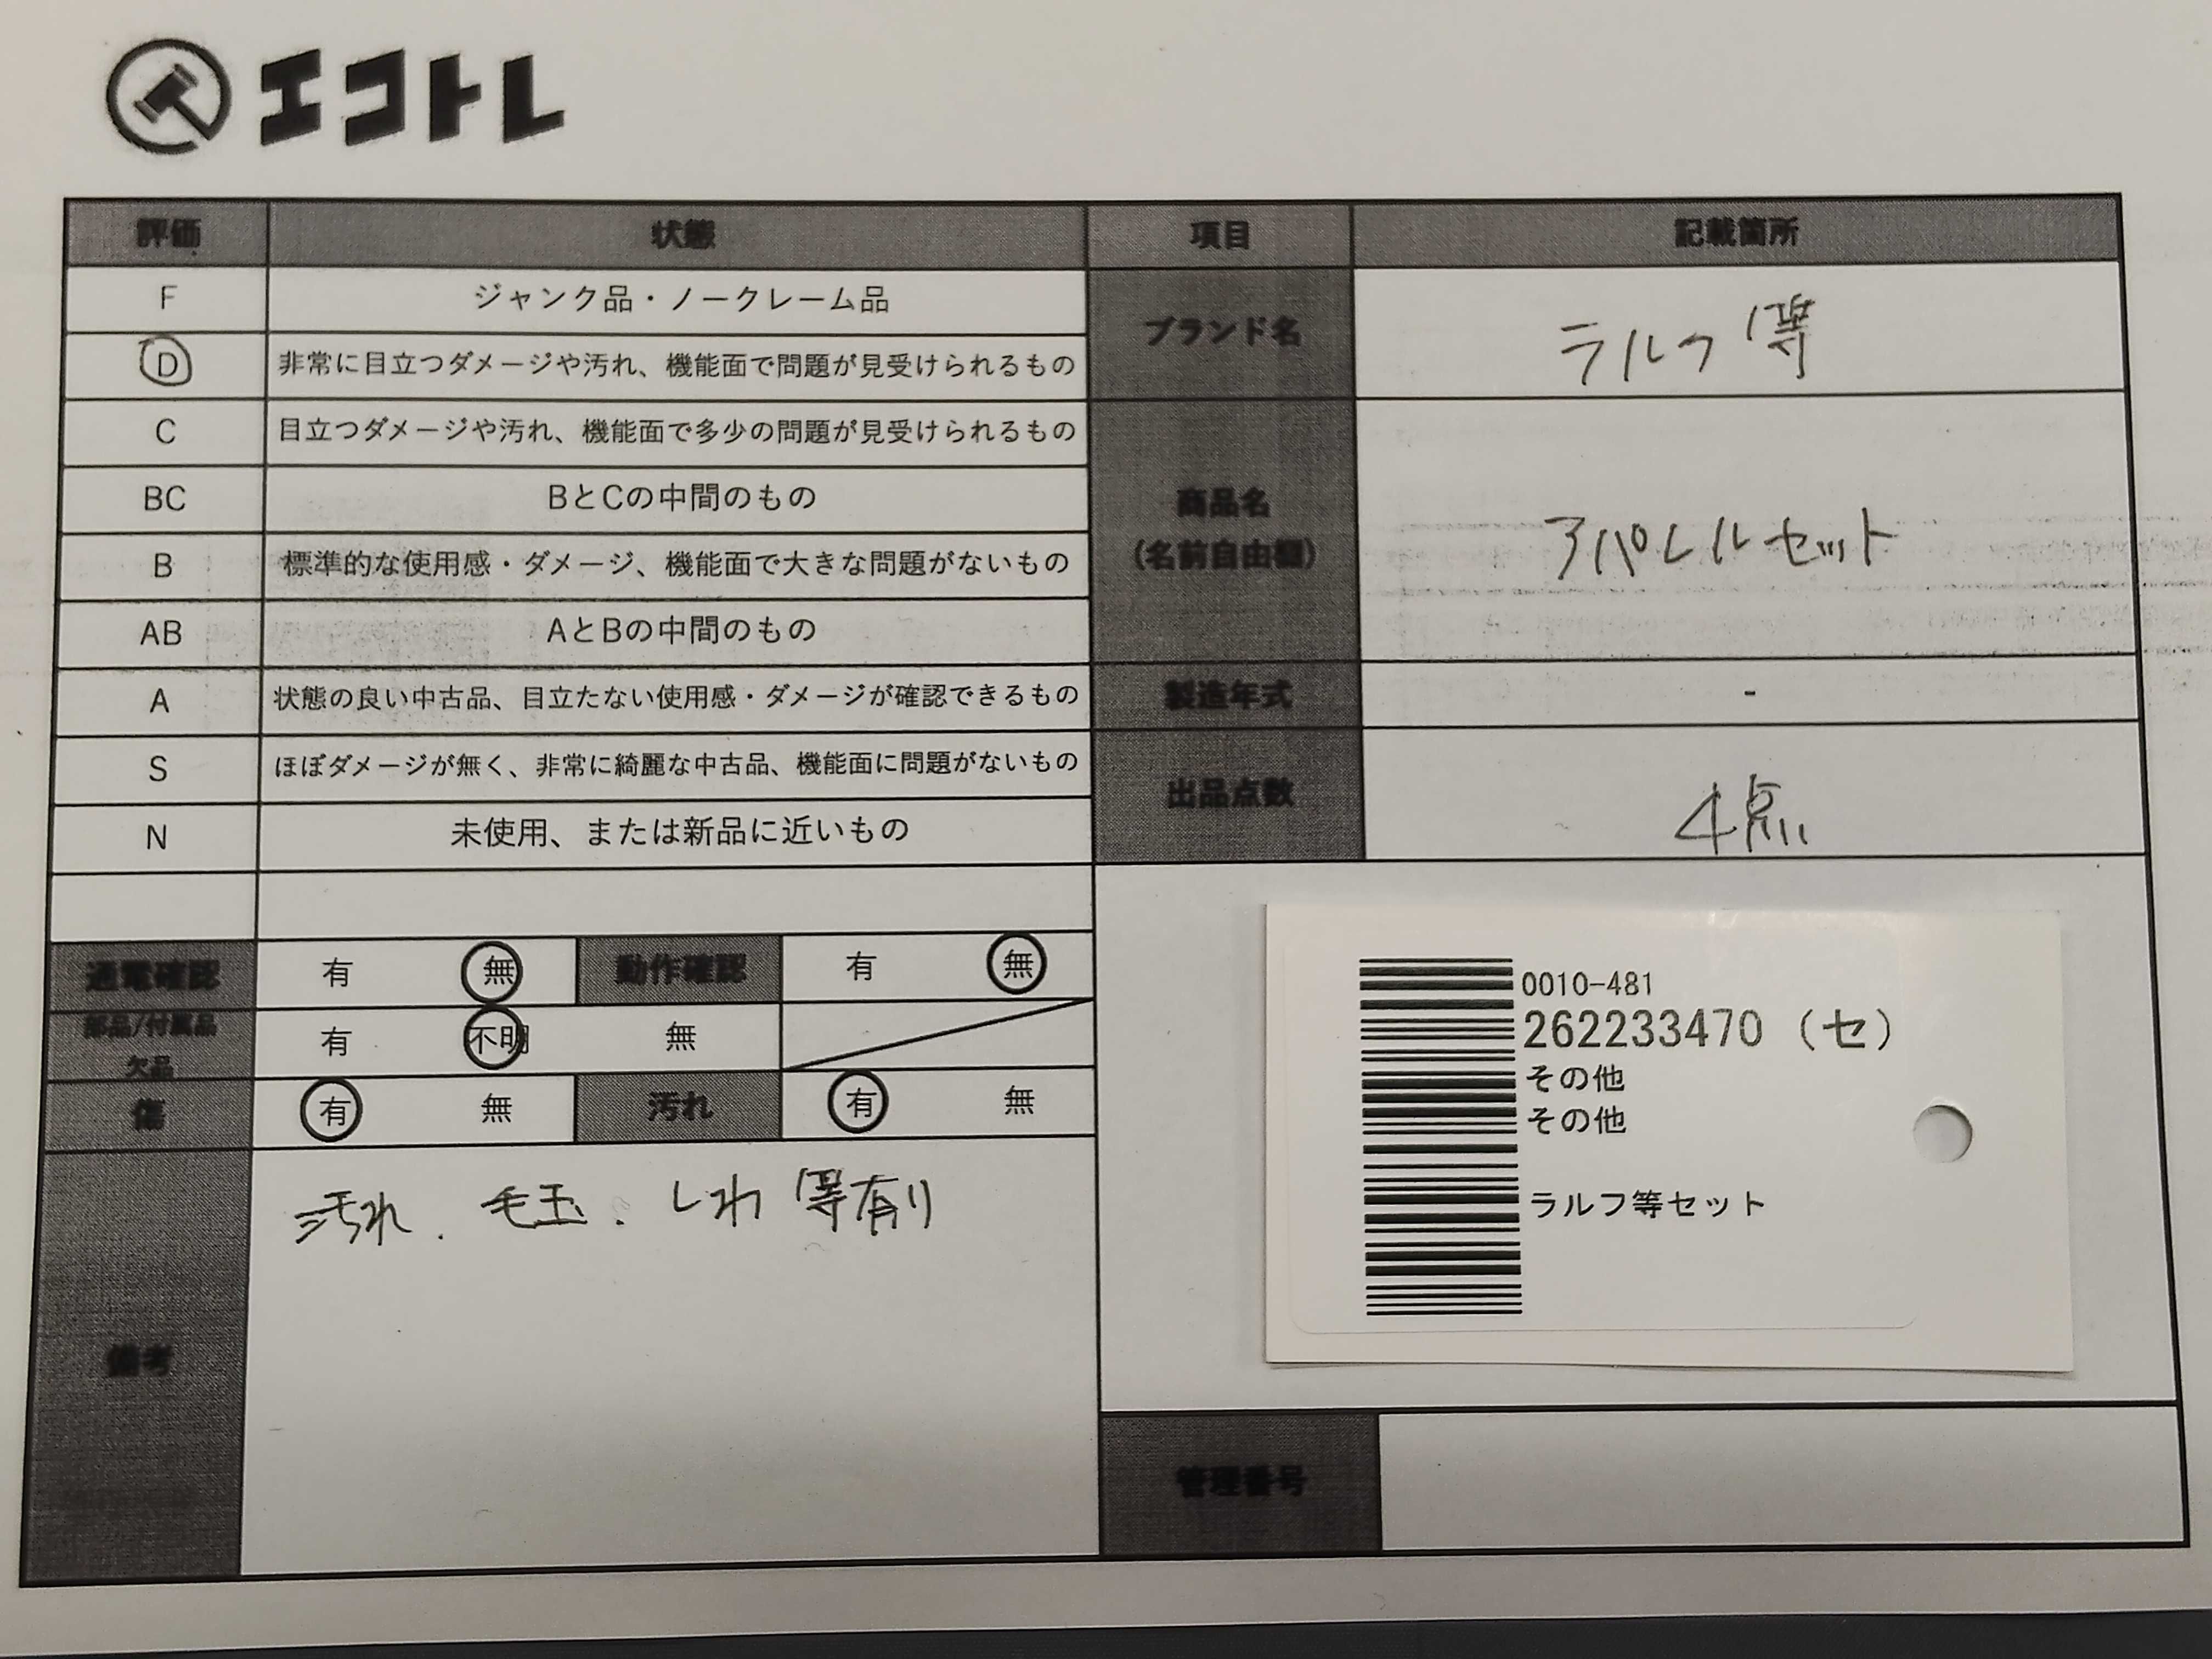 エコトレ
評価 状態 項目 記載箇所
F ジャンク品・ノークレーム品
D 非常に目立つダメージや汚れ、機能面で問題が見受けられるもの
C 目立つダメージや汚れ、機能面で多少の問題が見受けられるもの
BC BとCの中間のもの
B 標準的な使用感・ダメージ、機能面で大きな問題がないもの
AB AとBの中間のもの
A 状態の良い中古品、目立たない使用感・ダメージが確認できるもの
S ほぼダメージが無く、非常に綺麗な中古品、機能面に問題がないもの
N 未使用、または新品に近いもの
ブランド名 ラルフ等
商品名
(名前自由欄)
アパレルセット
製造年式 -
出品点数 4点
通電確認 有 無 動作確認 有 無
部品/付属品
欠品
有 不明 無
傷 有 無 汚れ 有 無
備考 汚れ、毛玉、しわ等有り
0010-481
262233470(セ)
その他
その他
ラルフ等セット
管理番号